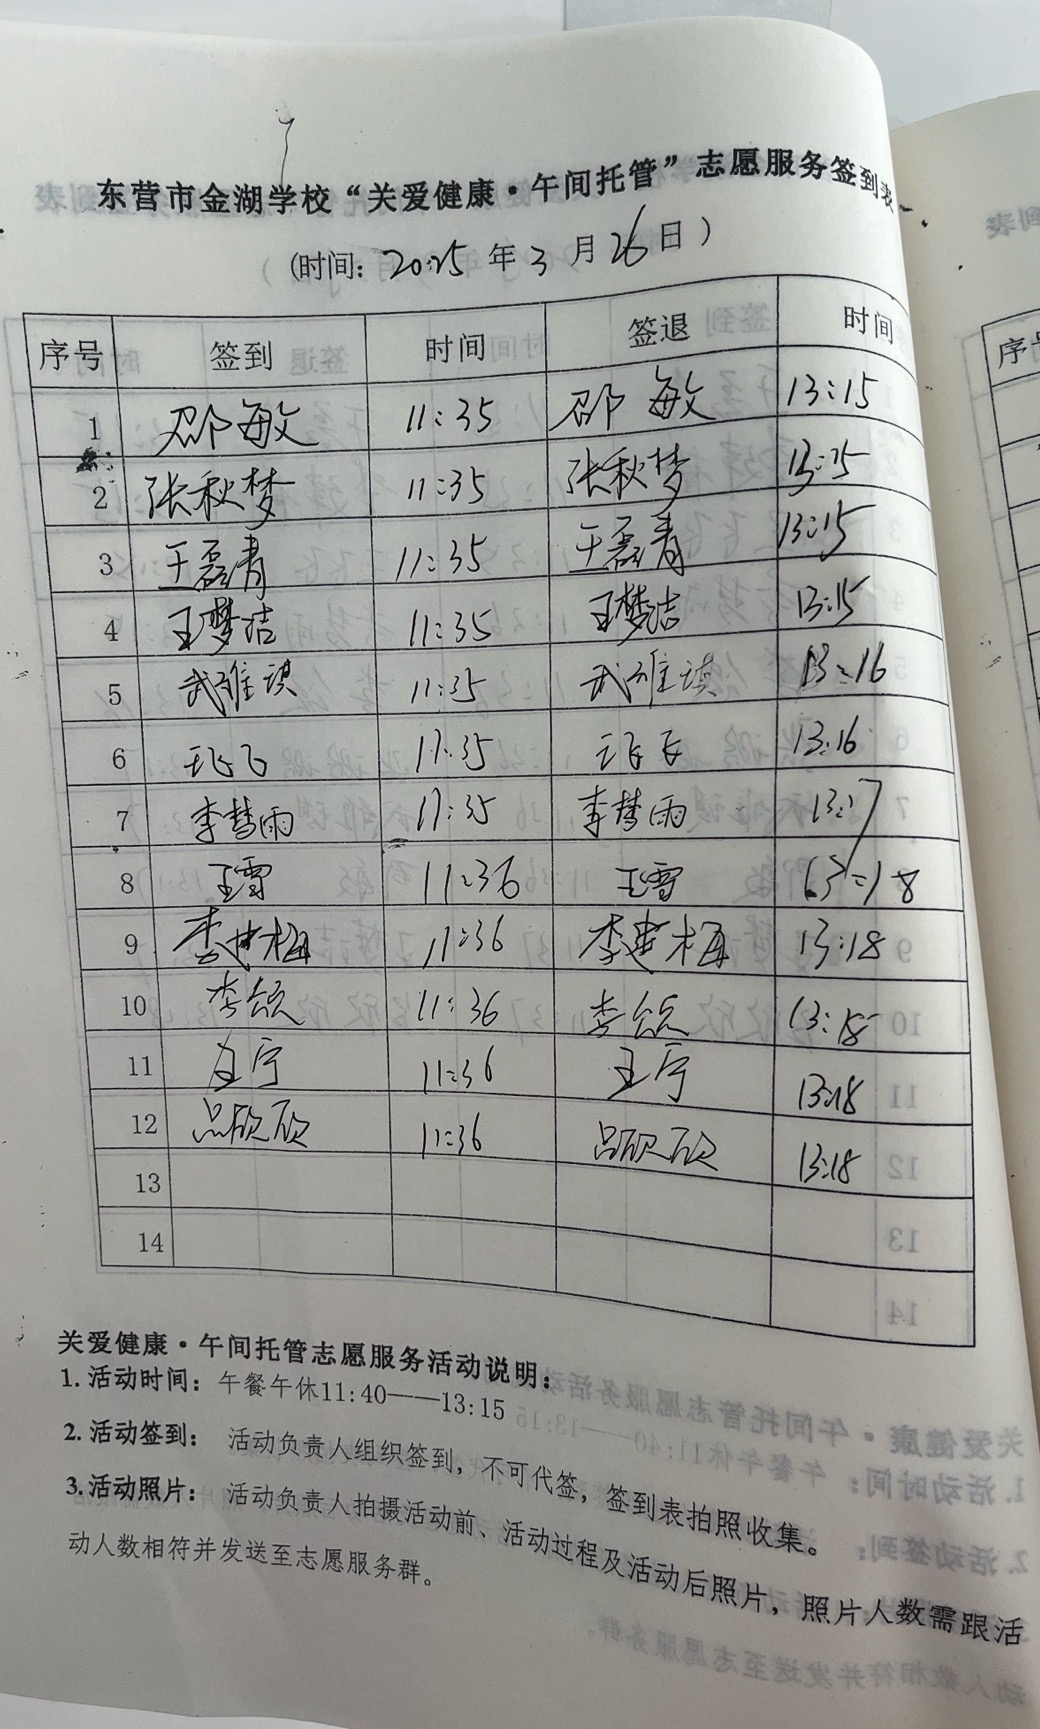 东营市金湖学校“关爱健康·午间托管”志愿服务签到表
(时间：2025年3月26日)
序号 签到 时间 签退 时间
1 邵敏 11:35 邵敏 13:15
2 张秋梦 11:35 张秋梦 13:15
3 王磊青 11:35 王磊青 13:15
4 王梦洁 11:35 王梦洁 13:15
5 武雅琪 11:35 武雅琪 13:16
6 11:35 13:16
7 李慧雨 11:35 李慧雨 13:17
8 王雪 11:36 王雪 13:18
9 李建梅 11:36 李建梅 13:18
10 李颂 11:36 李颂 13:18
11 王宁 11:36 王宁 13:18
12 吕欣欣 11:36 吕欣欣 13:18
13
14
关爱健康·午间托管志愿服务活动说明：
1.活动时间：午餐午休11:40——13:15
2.活动签到：活动负责人组织签到，不可代签，签到表拍照收集。
3.活动照片：活动负责人拍摄活动前、活动过程及活动后照片，照片人数需跟活
动人数相符并发送至志愿服务群。